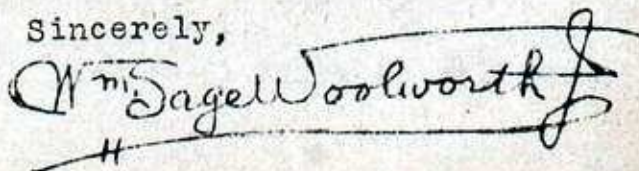 Sincerely,
Wm. Sage Woolworth